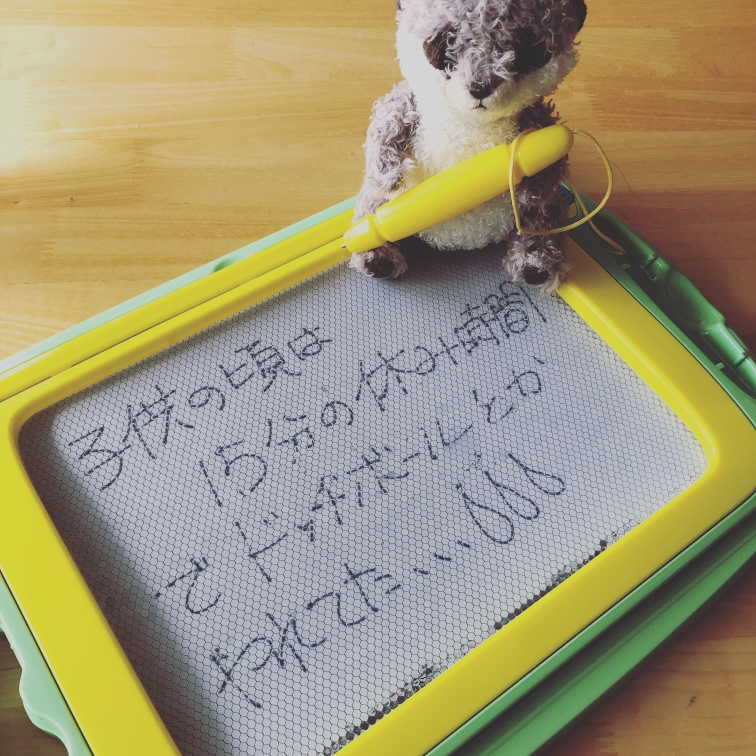 子供の頃は
15分の休み時間
でドッチボールとか
やれてた…